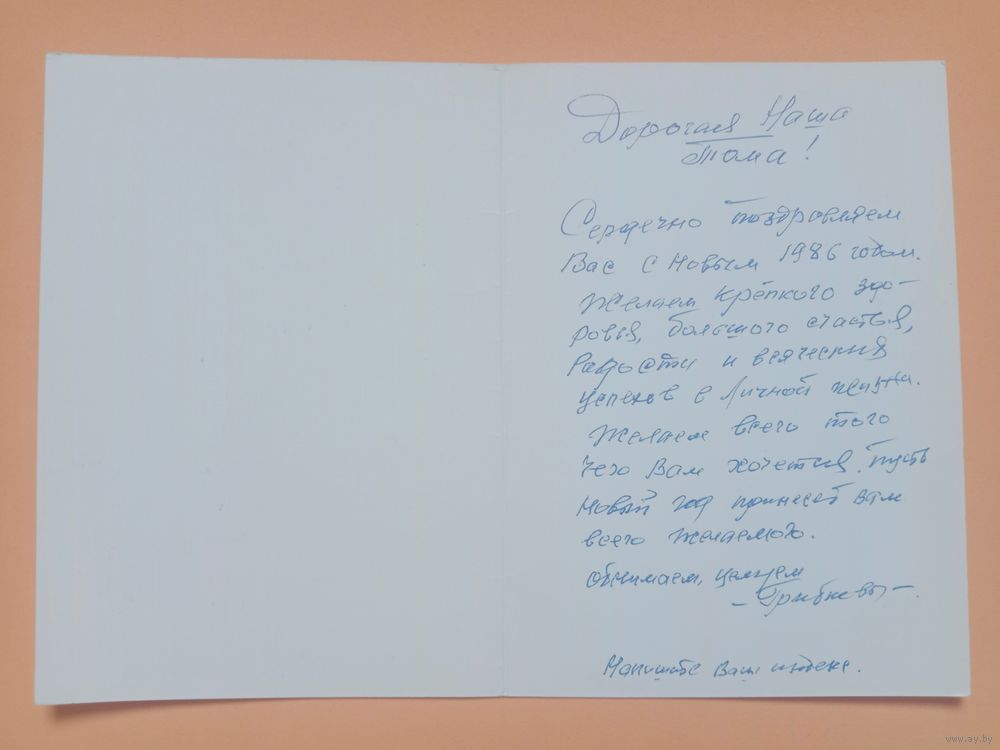 Дорогая Наша
Тома!
Сердечно поздравляем
Вас с Новым 1986 годом.
Желаем крепкого здо-
ровья, большого счастья,
Радости и всяческих
успехов в Личной жизни.
Желаем всего того
чего Вам хочется. Пусть
Новый год принесёт Вам
всего желаемого.
Обнимаем, целуем
-Грибневы-.
Напишите Ваш индекс.
www.ay.by